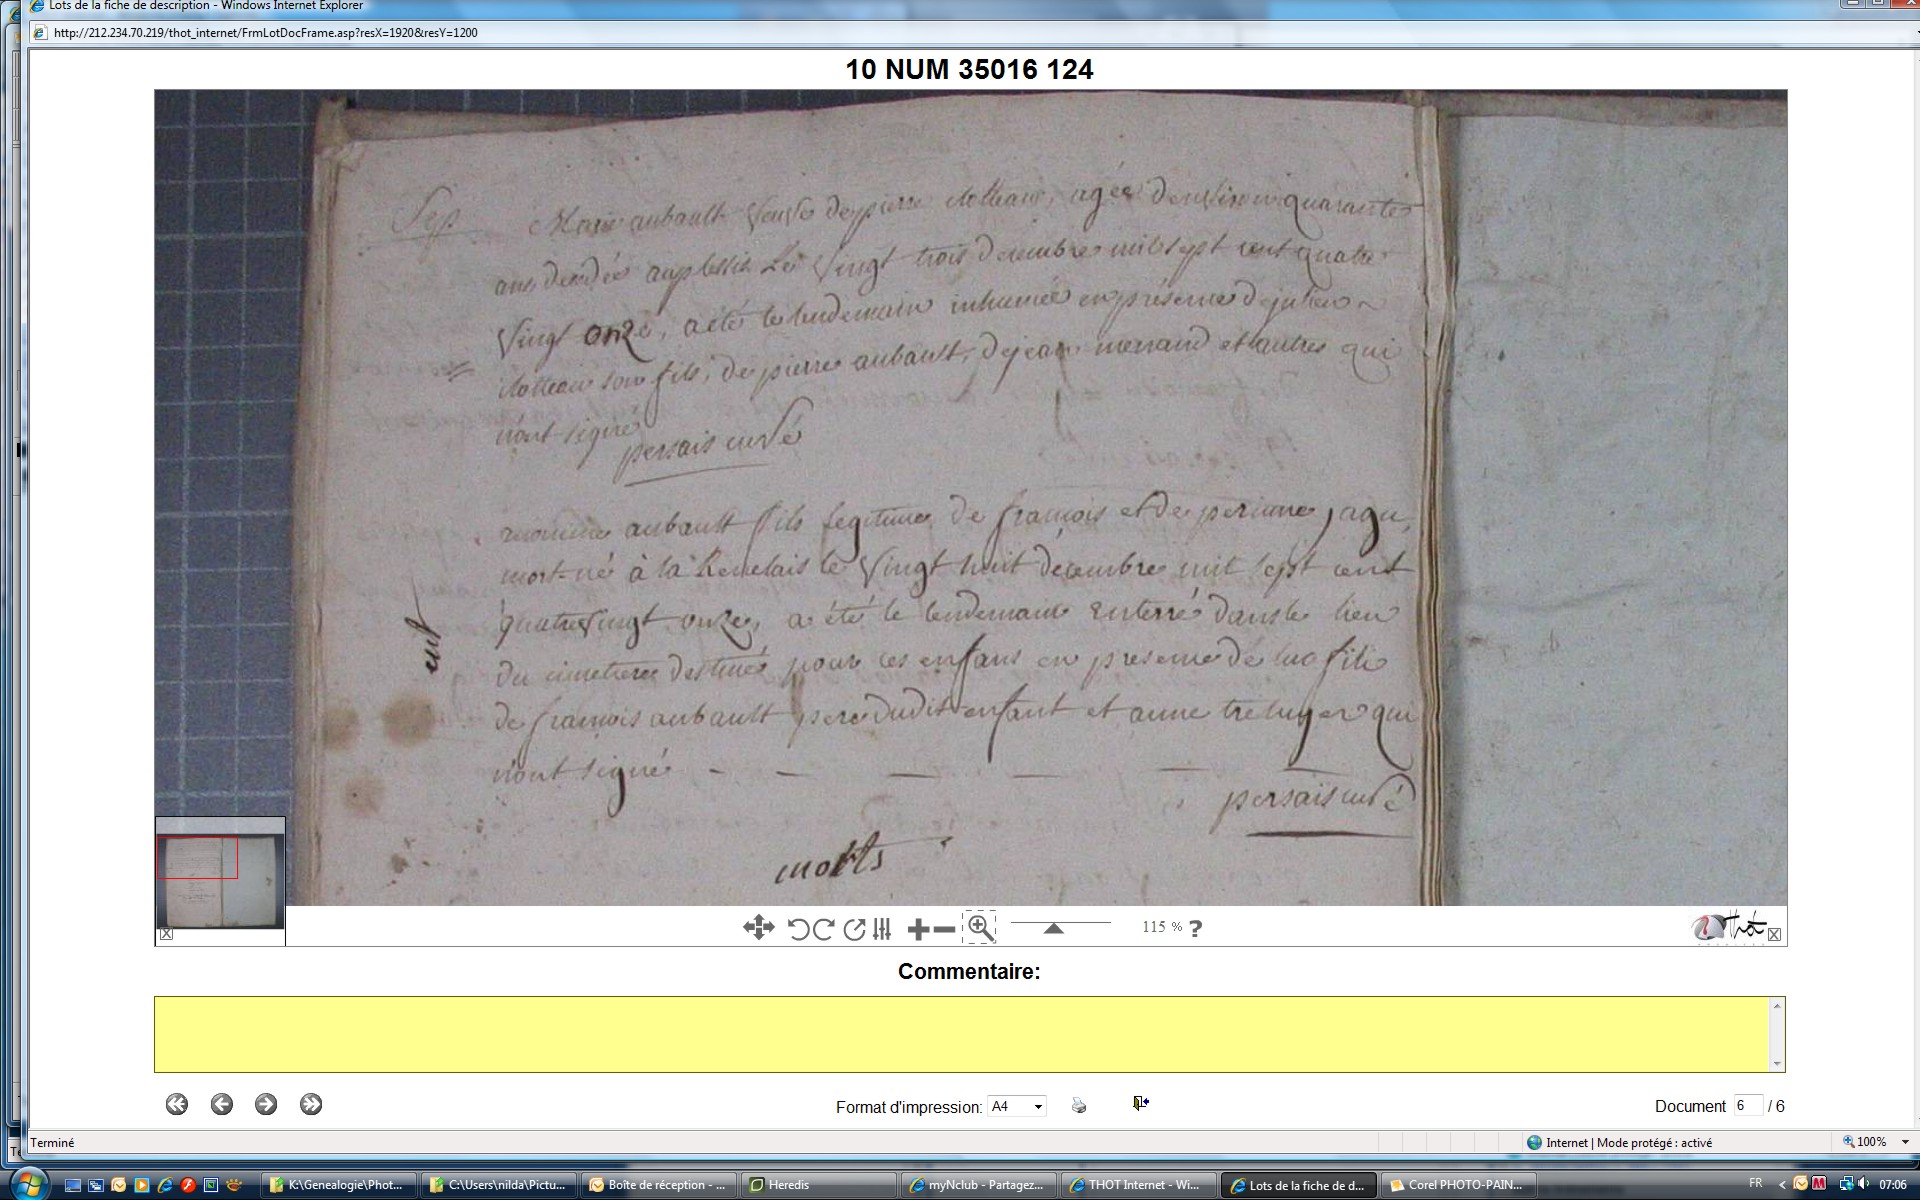 Lots de la fiche de description - Windows Internet Explorer
http://212.234.70.219/thot_internet/FrmLotDocFrame.asp?resX=1920&resY=1200
10 NUM 35016 124
Sep
Marie aubault veuve de pierre clolleau, agée denviron quarante
ans, decedée au plessix Le vingt trois decembre mil sept cent quatre
vingt onze, a été le lendemain inhumée en présence de julien
clolleau son fils, de pierre aubault, de jean menand et autres qui
n'ont signé
persais curé
nommé aubault fils legitime de françois et de perinne jagu,
mort-né à la le vingt huit décembre mil sept cent
quatre vingt onze, a été le lendemain enterré dans le lieu
du cimetiere destiné pour ces enfans en presence de luc fili
de françois aubault pere dudit enfant et anne qui
n'ont signé
persais curé
morts
115 %
?
Thot
Commentaire:
Format d'impression:
A4
Document
6
/ 6
Terminé
Internet | Mode protégé : activé
100%
K:\Genealogie\Phot...
C:\Users\nilda\Pictu...
Boîte de réception - ...
Heredis
myNclub - Partagez...
THOT Internet - Wi...
Lots de la fiche de d...
Corel PHOTO-PAIN...
FR
07:06